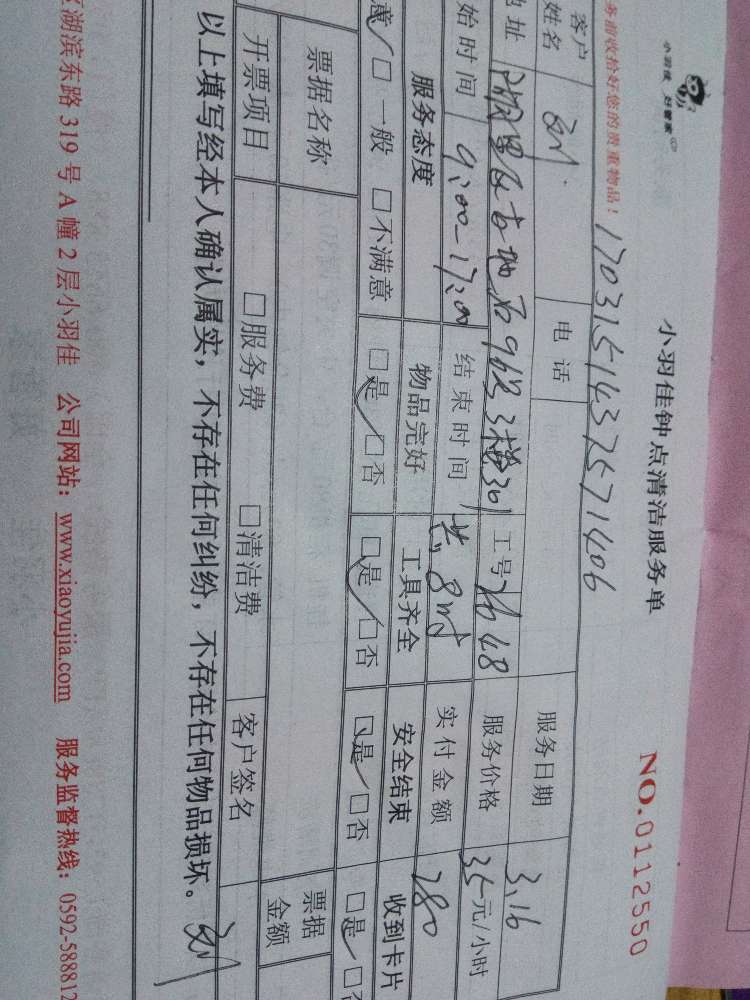 小羽佳 好管家
小羽佳钟点清洁服务单
NO.0112550
务请收拾好您的贵重物品！
1703151437571406
客户姓名 刘 电话 服务日期 3.16
地址 3楼301 工号 2648 服务价格 35元/小时
始时间 9:00-17:00 结束时间 共8时 实付金额 280
服务态度 物品完好 工具齐全 安全结束 收到卡片
意 □一般 □不满意 □是 □否 □是 □否 □是 □否 □是 □否
票据名称 票据金额
开票项目 □服务费 □清洁费 客户签名
以上填写经本人确认属实，不存在任何纠纷，不存在任何物品损坏。 刘
湖滨东路 319 号 A 幢 2 层小羽佳 公司网站：www.xiaoyujia.com 服务监督热线：0592-58881